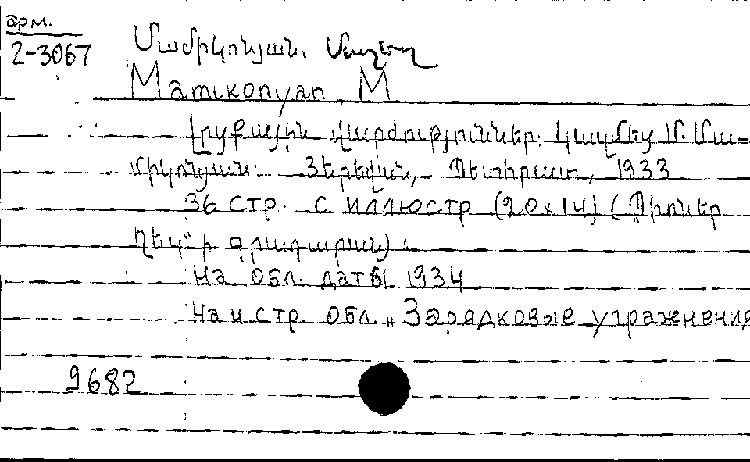 арм.
2-3067 Մամիկոնյան, Մ
Mamikonyan, M
Լրացքային վարժություններ: Կազմեց Մ. Մա-
միկոնյան: Յերեվան, Պետհրատ, 1933
36 стр. с иллюстр (20x14) (Պիոներ
ղեկ-ի գրադարան):
На обл. дата 1934
На и стр. обл. „Зарядковые упражнения
9682